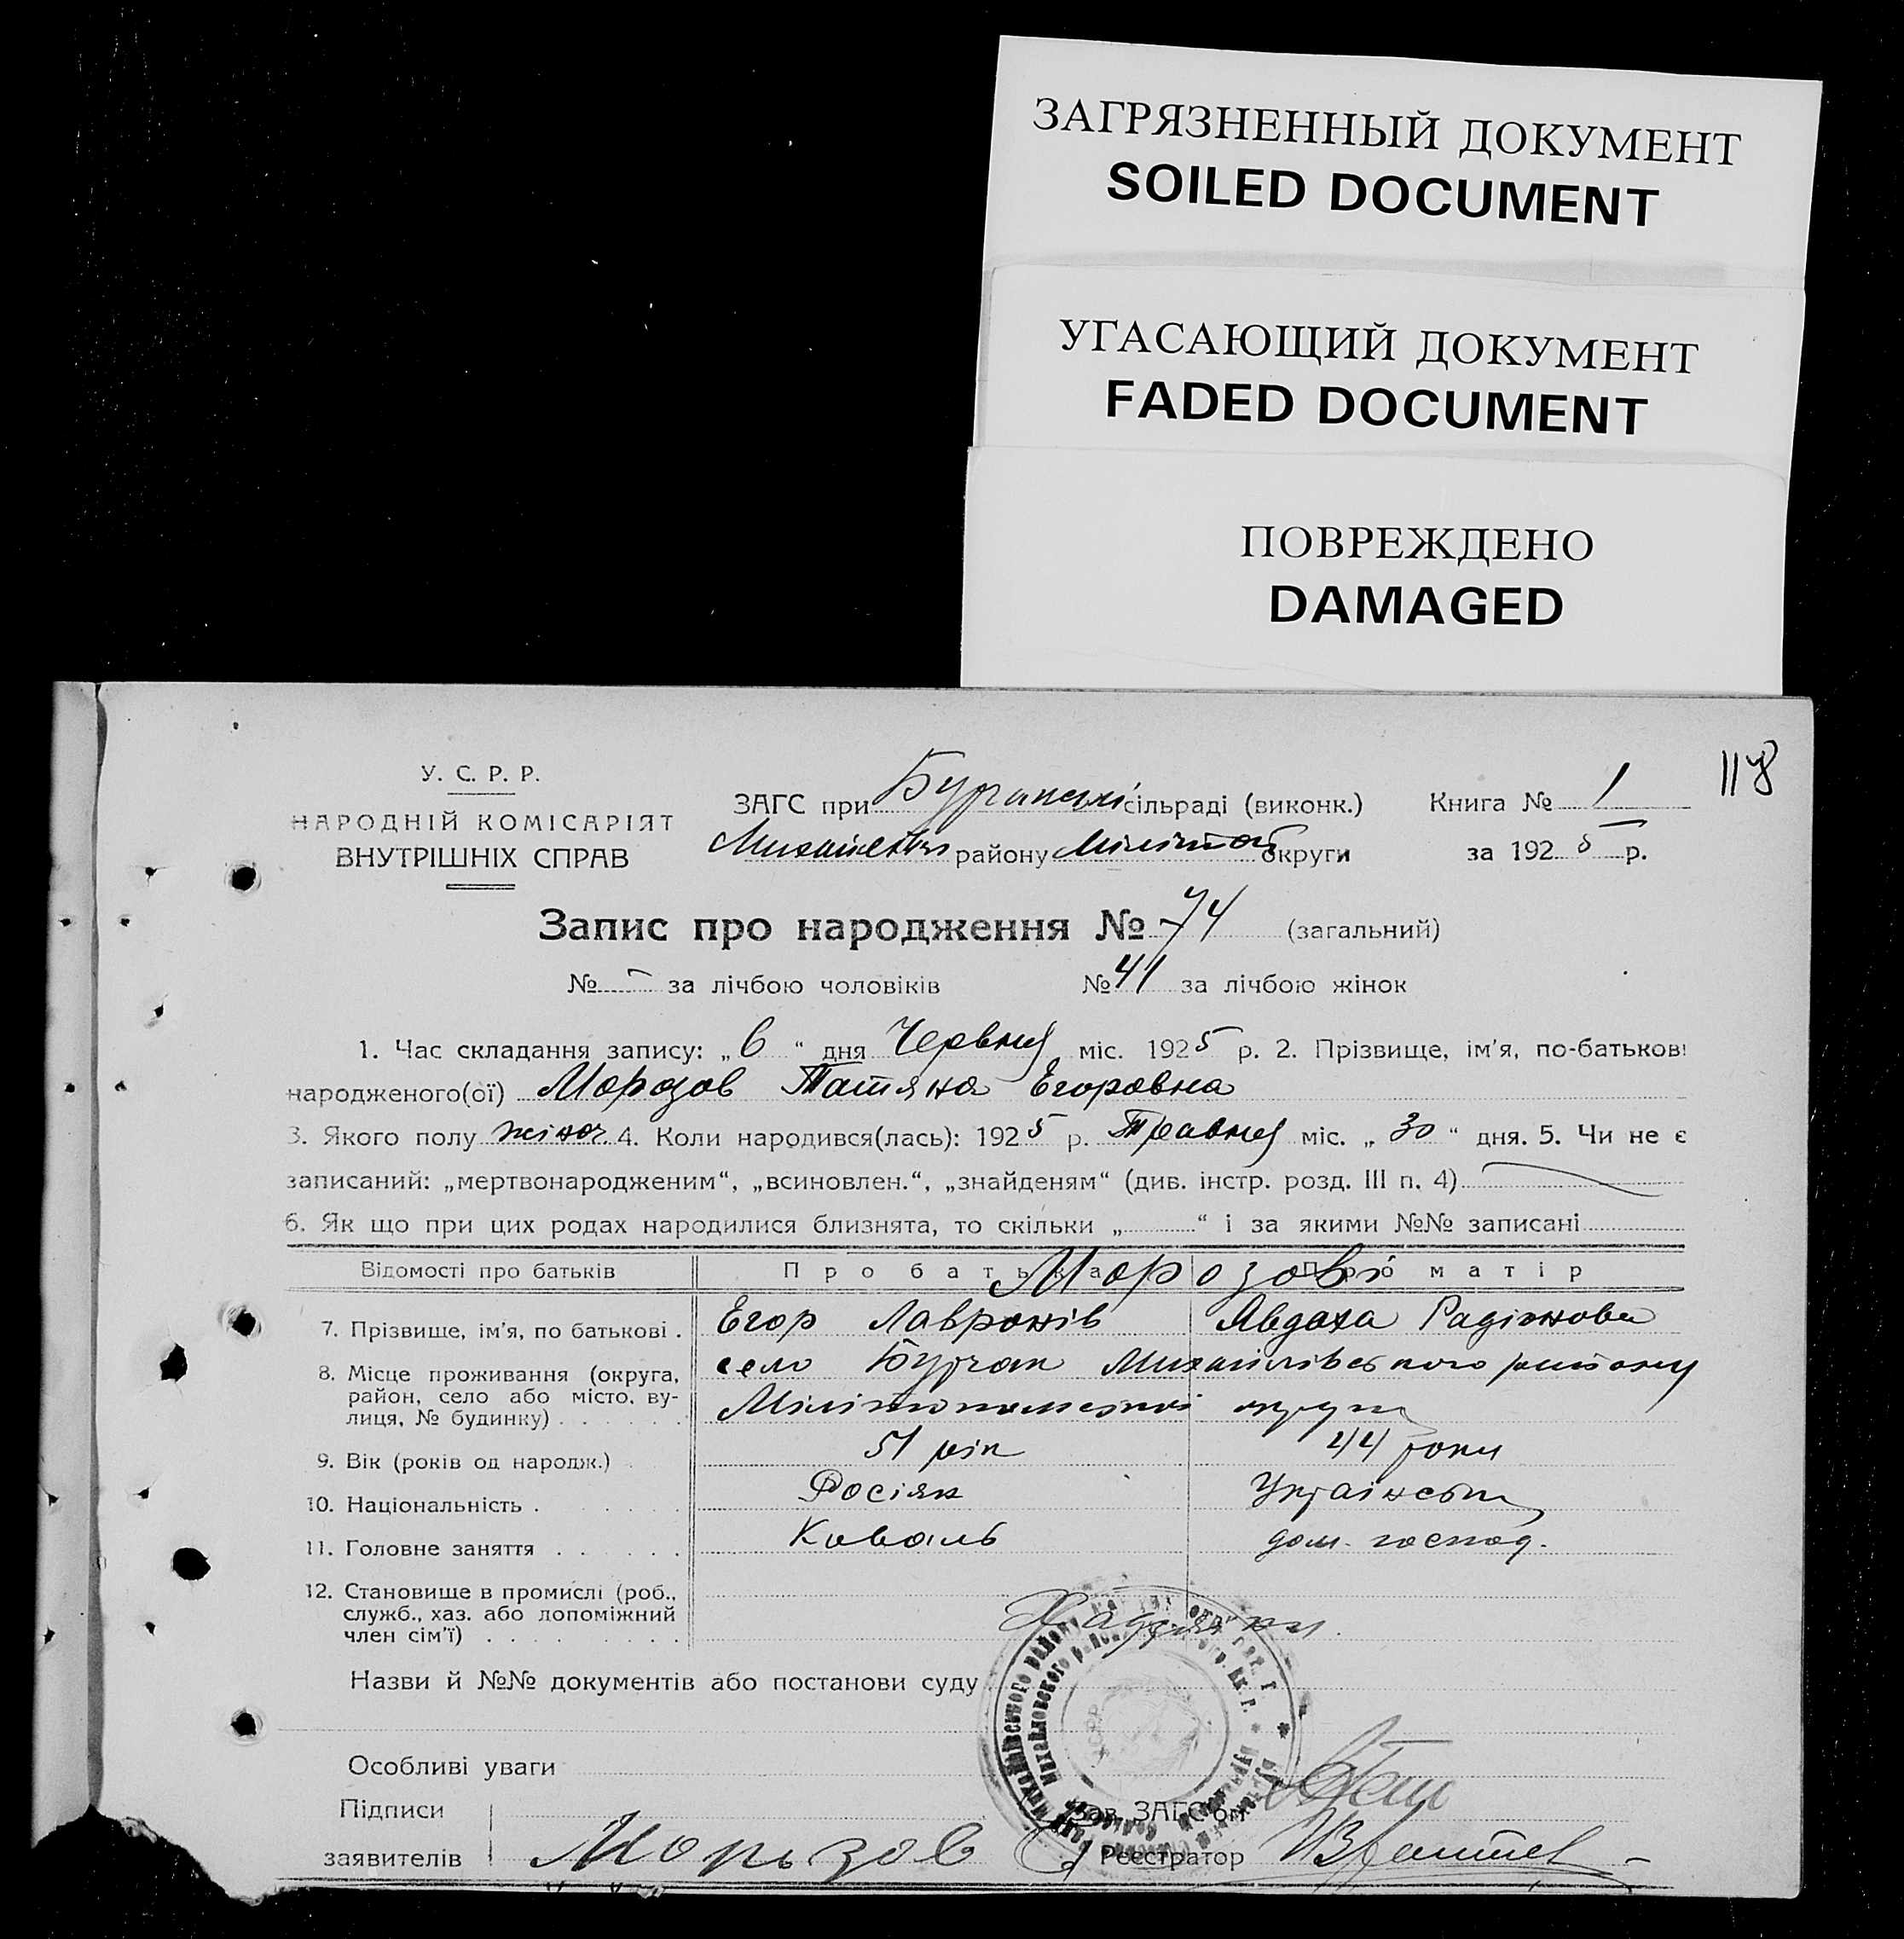 ЗАГРЯЗНЕННЫЙ ДОКУМЕНТ
SOILED DOCUMENT
УГАСАЮЩИЙ ДОКУМЕНТ
FADED DOCUMENT
ПОВРЕЖДЕНО
DAMAGED
118
У. С. Р. Р.
НАРОДНІЙ КОМІСАРІЯТ
ВНУТРІШНІХ СПРАВ
ЗАГС при сільраді (виконк.) Книга № 1
району округи за 1925 р.
Запис про народження № 74 (загальний)
№ - за лічбою чоловіків № 41 за лічбою жінок
1. Час складання запису: „6“ дня Червня міс. 1925 р. 2. Прізвище, ім'я, по-батькові
народженого(ої) Морозов Татяна Егоровна
3. Якого полу жіноч 4. Коли народився(лась): 1925 р. Травня міс. „30“ дня. 5. Чи не є
записаний: „мертвонародженим“, „всиновлен.“, „знайденям“ (див. інстр. розд. III п. 4)
6. Як що при цих родах народилися близнята, то скільки „ “ і за якими №№ записані
Відомості про батьків Про батька Про матір
Морозові
7. Прізвище, ім'я, по батькові . Егор Лавронів Явдоха Радіонова
8. Місце проживання (округа, село Бурчак Михайлівського району
район, село або місто, ву-
лиця, № будинку) . . . . . . Мілітопольської округи
9. Вік (років од народж.) 51 рік 44 роки
10. Національність . Росіян Українська
11. Головне заняття . . . . . Коваль дом. господ.
12. Становище в промислі (роб.,
служб., хаз. або допоміжний
член сім'ї) . . . . . . . . .
Назви й №№ документів або постанови суду
Особливі уваги
Підписи
Зав. ЗАГС'ом
заявителів Морозов Реєстратор